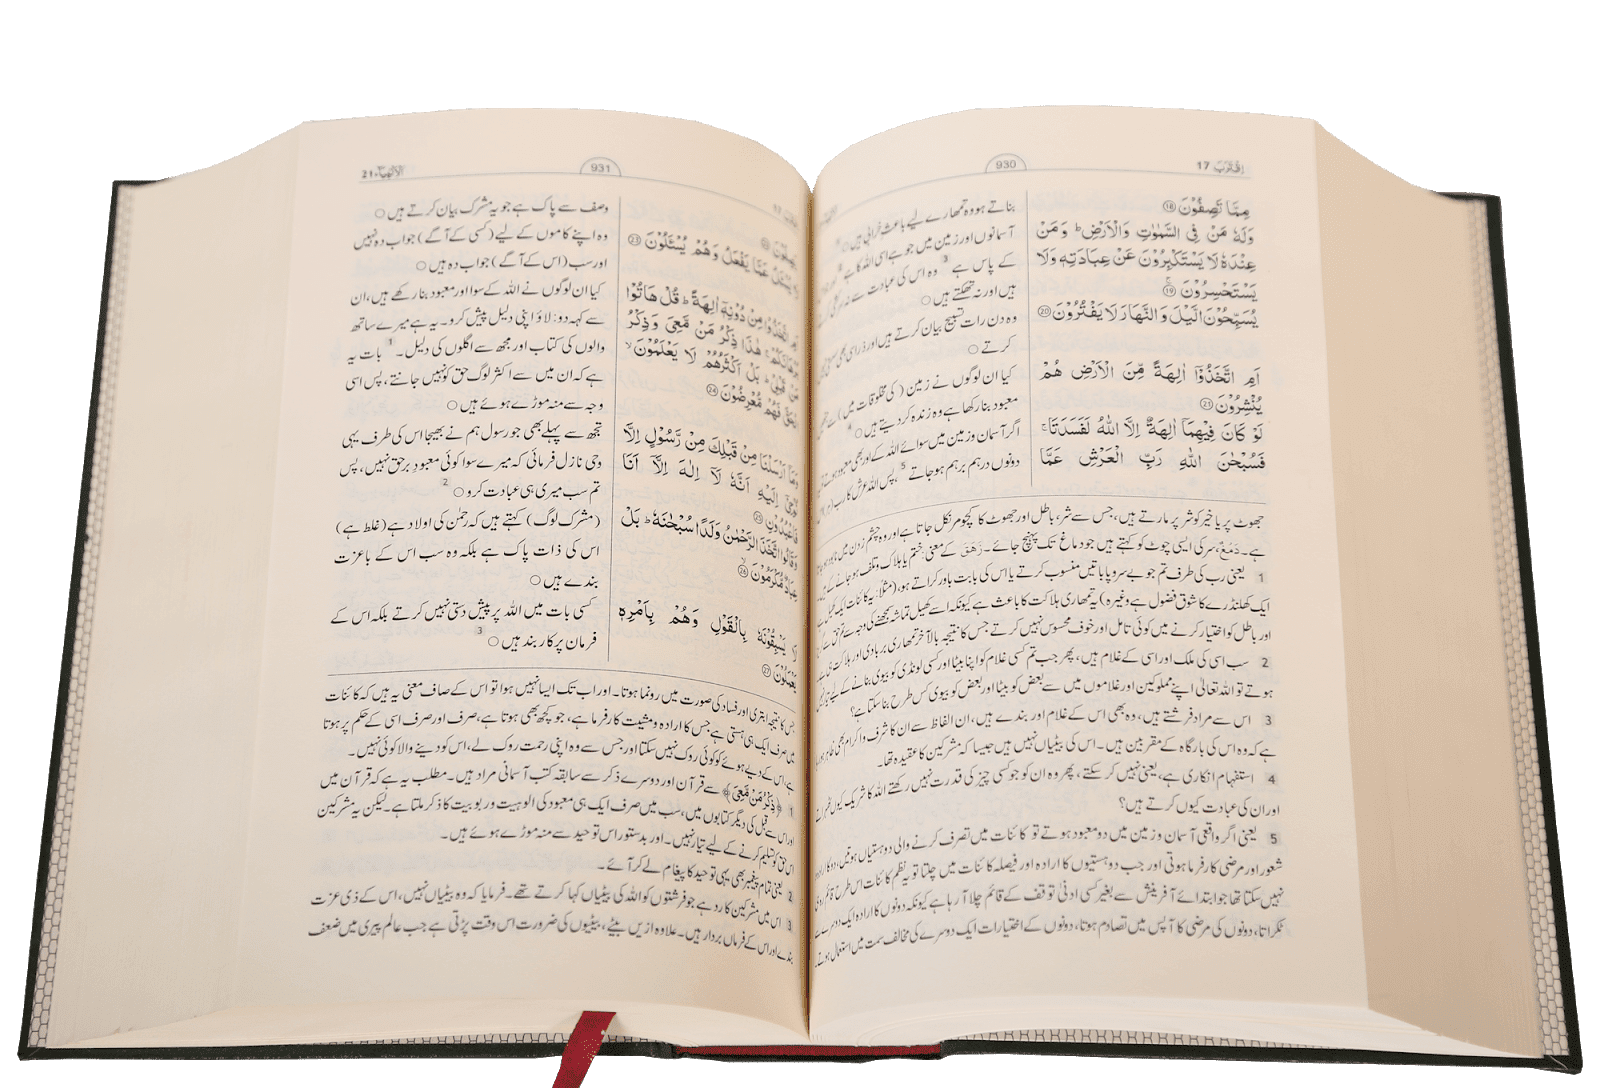 اِقْتَرَبَ 17
930
مِمَّا تَصِفُوْنَ ⑱
وَلَهٗ مَنْ فِي السَّمٰوٰتِ وَالْاَرْضِ ؕ وَمَنْ
عِنْدَهٗ لَا يَسْتَكْبِرُوْنَ عَنْ عِبَادَتِهٖ وَلَا
يَسْتَحْسِرُوْنَ ⑲
يُسَبِّحُوْنَ الَّيْلَ وَالنَّهَارَ لَا يَفْتُرُوْنَ ⑳
اَمِ اتَّخَذُوْۤا اٰلِهَةً مِّنَ الْاَرْضِ هُمْ
يُنْشِرُوْنَ ㉑
لَوْ كَانَ فِيْهِمَاۤ اٰلِهَةٌ اِلَّا اللّٰهُ لَفَسَدَتَا ۚ
فَسُبْحٰنَ اللّٰهِ رَبِّ الْعَرْشِ عَمَّا
بناتے ہو وہ تمھارے لیے باعث خرابی ہیں ○
آسمانوں اور زمین میں جو ہے اسی اللہ کا ہے
کے پاس ہے 3 وہ اس کی عبادت سے نہ
ہیں اور نہ تھکتے ہیں ○
وہ دن رات تسبیح بیان کرتے ہیں اور ذرا سی بھی
کرتے ○
کیا ان لوگوں نے زمین (کی مخلوقات میں) سے
معبود بنا رکھا ہے وہ زندہ کر دیتے ہیں 4 ○
اگر آسمان و زمین میں سوائے اللہ کے اور بھی معبود ہوتے تو یہ
دونوں درہم برہم ہو جاتے 5 پس اللہ عرش کا رب
جھوٹ پر یا خیر کو شر پر مارتے ہیں، جس سے شر، باطل اور جھوٹ کا کچومر نکل جاتا ہے اور وہ چشم زدن میں
ہے۔ دَمَغَ، سر کی ایسی چوٹ کو کہتے ہیں جو دماغ تک پہنچ جائے۔ زَهَقَ کے معنی ختم یا ہلاک و تلف ہو جانے کے
1 یعنی رب کی طرف تم جو بے سروپا باتیں منسوب کرتے یا اس کی بابت باور کراتے ہو، (مثلاً: یہ کائنات ایک کھیل
ایک کھلنڈرے کا شوق فضول ہے وغیرہ) یہ تمھاری ہلاکت کا باعث ہے کیونکہ اسے کھیل تماشہ سمجھنے کی وجہ سے
اور باطل کو اختیار کرنے میں کوئی تامل اور خوف محسوس نہیں کرتے جس کا نتیجہ بالآخر تمھاری بربادی اور ہلاکت ہی ہے
2 سب اسی کی ملک اور اسی کے غلام ہیں، پھر جب تم کسی غلام کو اپنا بیٹا اور کسی لونڈی کو بیوی بنانے کے لیے
ہوتے تو اللہ تعالیٰ اپنے مملوکین اور غلاموں میں سے بعض کو بیٹا اور بعض کو بیوی کس طرح بنا سکتا ہے؟
3 اس سے مراد فرشتے ہیں، وہ بھی اس کے غلام اور بندے ہیں، ان الفاظ سے ان کا شرف و اکرام بھی ظاہر
ہے کہ وہ اس کی بارگاہ کے مقربین ہیں۔ اس کی بیٹیاں نہیں ہیں جیسا کہ مشرکین کا عقیدہ تھا۔
4 استفہام انکاری ہے، یعنی نہیں کر سکتے، پھر وہ ان کو جو کسی چیز کی قدرت نہیں رکھتے اللہ کا شریک کیوں
اور ان کی عبادت کیوں کرتے ہیں؟
5 یعنی اگر واقعی آسمان و زمین میں دو معبود ہوتے تو کائنات میں تصرف کرنے والی دو ہستیاں ہوتیں، دو کا ارادہ
شعور اور مرضی کارفرما ہوتی اور جب دو ہستیوں کا ارادہ اور فیصلہ کائنات میں چلتا تو یہ نظم کائنات اس طرح قائم
نہیں سکتا تھا جو ابتدائے آفرینش سے بغیر کسی ادنیٰ توقف کے قائم چلا آ رہا ہے کیونکہ دونوں کا ارادہ ایک دوسرے سے
ٹکراتا، دونوں کی مرضی کا آپس میں تصادم ہوتا، دونوں کے اختیارات ایک دوسرے کی مخالف سمت میں استعمال ہوتے۔
931
الْاَنْبِيَآء 21
يَصِفُوْنَ ㉒
لَا يُسْـَٔلُ عَمَّا يَفْعَلُ وَهُمْ يُسْـَٔلُوْنَ ㉓
اَمِ اتَّخَذُوْا مِنْ دُوْنِهٖۤ اٰلِهَةً ؕ قُلْ هَاتُوْا
بُرْهَانَكُمْ ۚ هٰذَا ذِكْرُ مَنْ مَّعِيَ وَذِكْرُ
مَنْ قَبْلِيْ ؕ بَلْ اَكْثَرُهُمْ لَا يَعْلَمُوْنَ ۙ
الْحَقَّ فَهُمْ مُّعْرِضُوْنَ ㉔
وَمَاۤ اَرْسَلْنَا مِنْ قَبْلِكَ مِنْ رَّسُوْلٍ اِلَّا
نُوْحِيْۤ اِلَيْهِ اَنَّهٗ لَاۤ اِلٰهَ اِلَّاۤ اَنَا
فَاعْبُدُوْنِ ㉕
وَقَالُوا اتَّخَذَ الرَّحْمٰنُ وَلَدًا سُبْحٰنَهٗ ؕ بَلْ
عِبَادٌ مُّكْرَمُوْنَ ㉖
لَا يَسْبِقُوْنَهٗ بِالْقَوْلِ وَهُمْ بِاَمْرِهٖ
يَعْمَلُوْنَ ㉗
وصف سے پاک ہے جو یہ مشرک بیان کرتے ہیں ○
وہ اپنے کاموں کے لیے (کسی کے آگے) جواب دہ نہیں
اور سب (اس کے آگے) جواب دہ ہیں ○
کیا ان لوگوں نے اللہ کے سوا اور معبود بنا رکھے ہیں، ان
سے کہہ دو: لاؤ اپنی دلیل پیش کرو۔ یہ ہے میرے ساتھ
والوں کی کتاب اور مجھ سے اگلوں کی دلیل۔ 1 بات یہ
ہے کہ ان میں سے اکثر لوگ حق کو نہیں جانتے، پس اسی
وجہ سے منہ موڑے ہوئے ہیں ○
تجھ سے پہلے بھی جو رسول ہم نے بھیجا اس کی طرف یہی
وحی نازل فرمائی کہ میرے سوا کوئی معبود برحق نہیں، پس
تم سب میری ہی عبادت کرو 2 ○
(مشرک لوگ) کہتے ہیں کہ رحمٰن کی اولاد ہے (غلط ہے)
اس کی ذات پاک ہے بلکہ وہ سب اس کے باعزت
بندے ہیں ○
کسی بات میں اللہ پر پیش دستی نہیں کرتے بلکہ اس کے
فرمان پر کاربند ہیں 3 ○
جس کا نتیجہ ابتری اور فساد کی صورت میں رونما ہوتا۔ اور اب تک ایسا نہیں ہوا تو اس کے صاف معنی یہ ہیں کہ کائنات
میں صرف ایک ہی ہستی ہے جس کا ارادہ و مشیت کارفرما ہے، جو کچھ بھی ہوتا ہے، صرف اور صرف اسی کے حکم پر ہوتا
ہے، اس کے دیے ہوئے کو کوئی روک نہیں سکتا اور جس سے وہ اپنی رحمت روک لے، اس کو دینے والا کوئی نہیں۔
1 ﴿ذِكْرُ مَنْ مَّعِيَ﴾ سے قرآن اور دوسرے ذکر سے سابقہ کتب آسمانی مراد ہیں۔ مطلب یہ ہے کہ قرآن میں
اور اس سے قبل کی دیگر کتابوں میں، سب میں صرف ایک ہی معبود کی الوہیت و ربوبیت کا ذکر ملتا ہے۔ لیکن یہ مشرکین
اس حق کو تسلیم کرنے کے لیے تیار نہیں۔ اور بدستور اس توحید سے منہ موڑے ہوئے ہیں۔
2 یعنی تمام پیغمبر بھی یہی توحید کا پیغام لے کر آئے۔
3 اس میں مشرکین کا رد ہے جو فرشتوں کو اللہ کی بیٹیاں کہا کرتے تھے۔ فرمایا کہ وہ بیٹیاں نہیں، اس کے ذی عزت
بندے اور اس کے فرماں بردار ہیں۔ علاوہ ازیں بیٹے، بیٹیوں کی ضرورت اس وقت پڑتی ہے جب عالم پیری میں ضعف